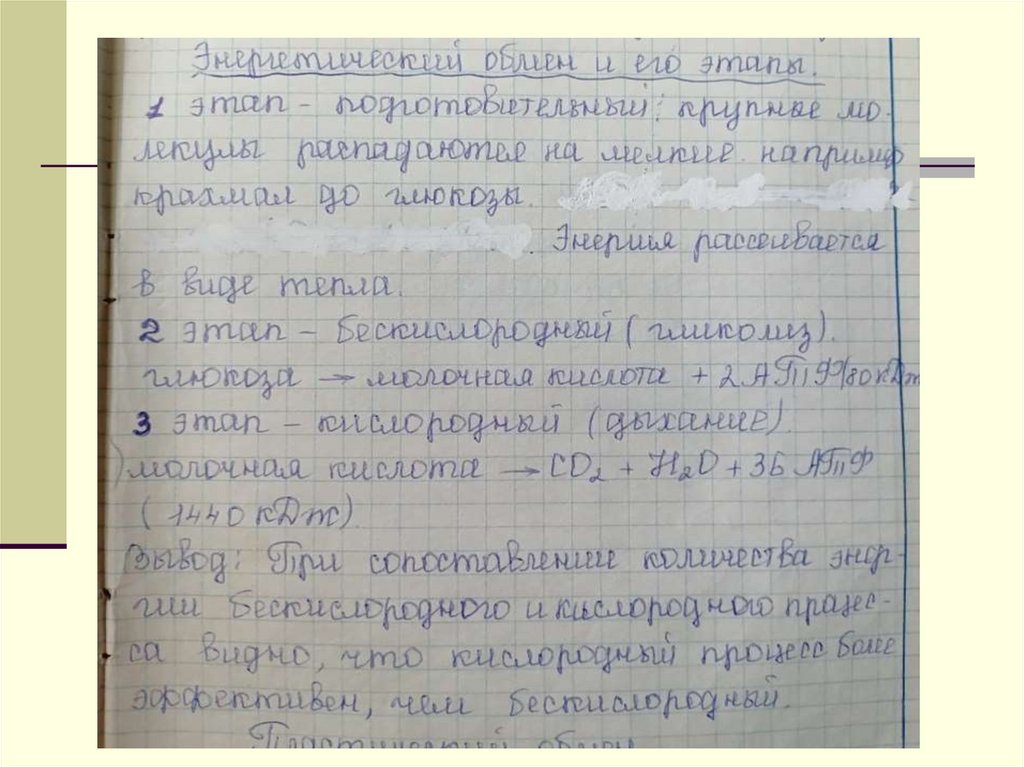 Энергетический обмен и его этапы.
1 этап – подготовительный: крупные мо-
лекулы распадаются на мелкие. например
крахмал до глюкозы.
. Энергия рассеивается
в виде тепла.
2 этап – бескислородный (гликолиз).
глюкоза → молочная кислота + 2 АТФ (80 кДж
3 этап – кислородный (дыхание).
молочная кислота → CO₂ + H₂O + 36 АТФ
(1440 кДж)
Вывод: При сопоставлении количества энер-
гии бескислородного и кислородного процес-
са видно, что кислородный процесс более
эффективен, чем бескислородный.
Пластический обмен